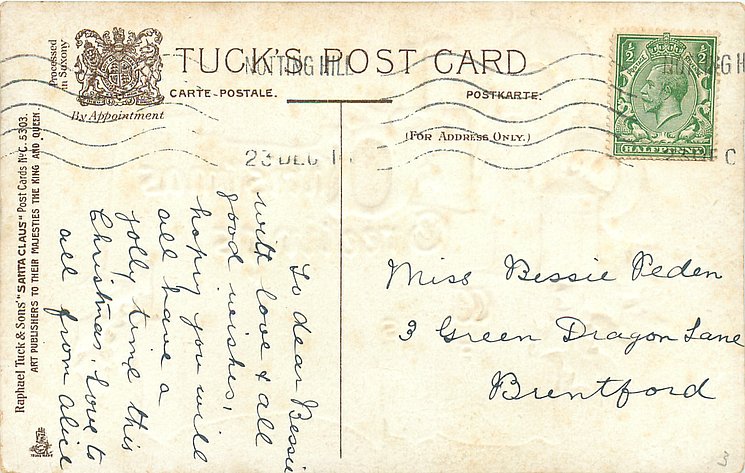 Processed
in Saxony
By Appointment
TUCK'S POST CARD
CARTE-POSTALE.
POSTKARTE.
(FOR ADDRESS ONLY.)
NOTTING HILL
23 DEC 1
NOTTING H
C
1/2
1/2
POSTAGE
HALFPENNY
Raphael Tuck & Sons' "SANTA CLAUS" Post Cards No C. 5303.
ART PUBLISHERS TO THEIR MAJESTIES THE KING AND QUEEN.
To dear Bessie
with love & all
good wishes,
hoping you will
all have a
jolly time this
Christmas. Love to
all from Alice
Miss Bessie Peden
3 Green Dragon Lane
Brentford
3